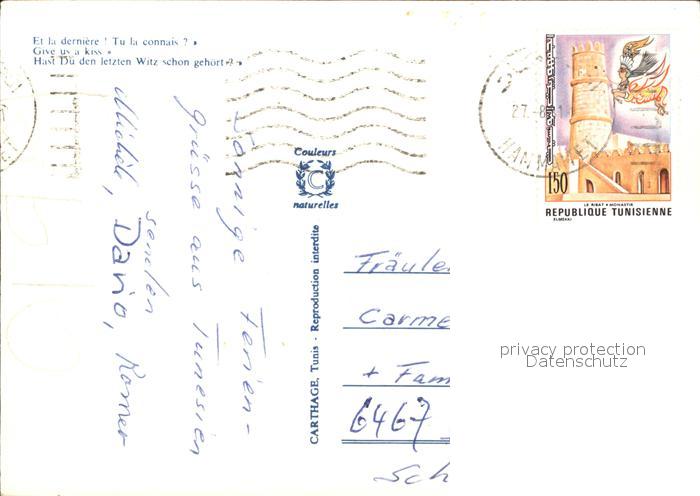 Et la dernière ! Tu la connais ? »
Give us a kiss »
Hast Du den letzten Witz schon gehört ? »
Sonnige Ferien-
grüsse aus Tunesien
senden
Michèle, Dario,
Couleurs
C
naturelles
CARTHAGE, Tunis - Reproduction interdite
27. 8.
HAMMAMET
150
LE RIBAT • MONASTIR
REPUBLIQUE TUNISIENNE
ELMEKKI
Fräule
Carme
+ Fam
6467
Sch
privacy protection
Datenschutz